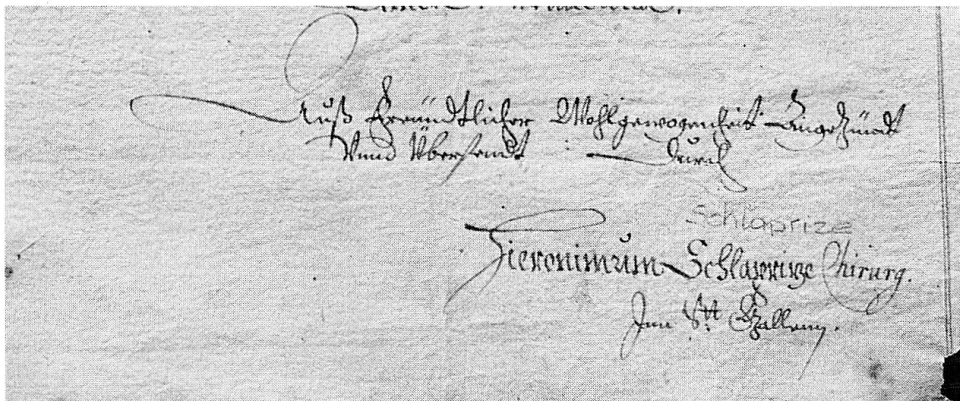 Auß Freündtlicher Wohlgewogenheit
Vnnd Übersendt durch
Schlaprize
Hieronimum Schlaprize Chirurg.
Jnn Stt Gallenn.